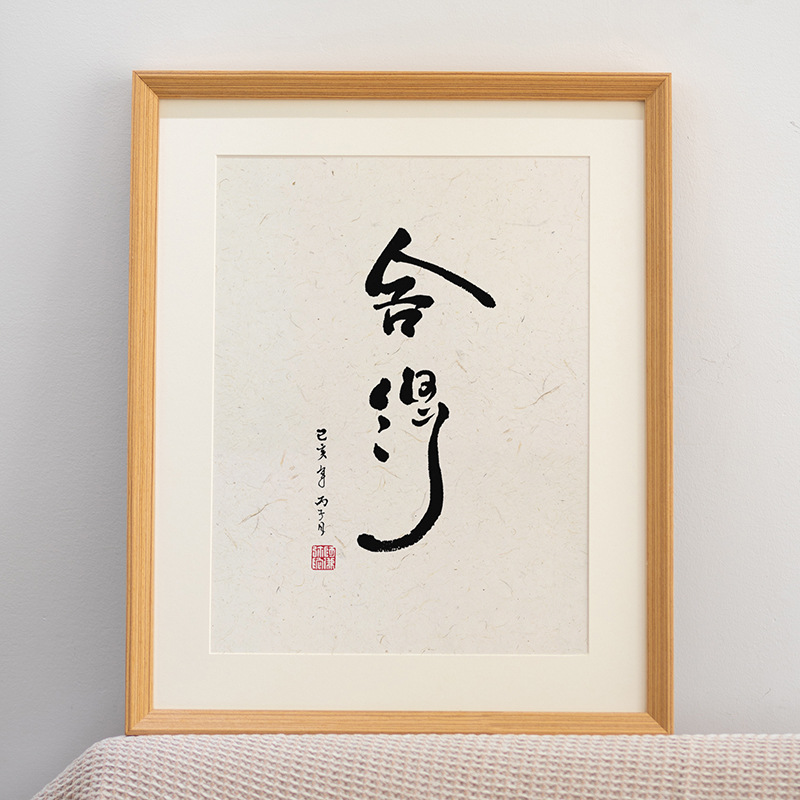 舍得
己亥年 丙子月